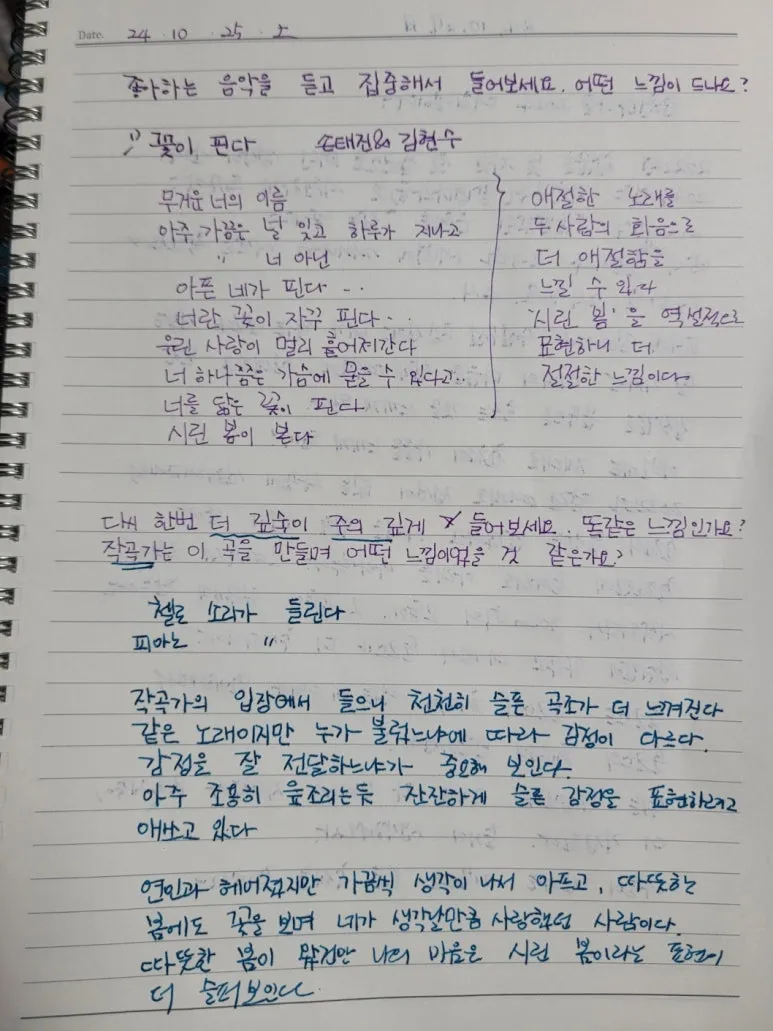 Date. 24 · 10 · 25 ·
좋아하는 음악을 듣고 집중해서 들어보세요. 어떤 느낌이 드나요?
꽃이 핀다 손태진& 김현수
무거운 너의 이름
아주 가끔은 널 잊고 하루가 지나고
" 너 아닌 ·····
아픈 네가 핀다 ··
너란 꽃이 자꾸 핀다··
우린 사랑이 멀리 흩어져간다
너 하나쯤은 가슴에 묻을 수 있다고..
너를 닮은 꽃이 핀다
시린 봄이 본다
애절한 노래를
두 사람의 화음으로
더 애절함을
느낄 수 있다
'시린 봄'을 역설적으로
표현하니 더
절절한 느낌이다
다시 한번 더 깊숙이 주의 깊게 들어보세요. 똑같은 느낌인가요?
작곡가는 이 곡을 만들며 어떤 느낌이었을 것 같은가요?
첼로 소리가 들린다
피아노 "
작곡가의 입장에서 들으니 천천히 슬픈 곡조가 더 느껴진다
같은 노래이지만 누가 불렀느냐에 따라 감정이 다르다.
감정을 잘 전달하느냐가 중요해 보인다.
아주 조용히 읊조리는듯 잔잔하게 슬픈 감정을 표현하려고
애쓰고 있다
연인과 헤어졌지만 가끔씩 생각이 나서 아프고, 따뜻한
봄에도 꽃을 보며 네가 생각날만큼 사랑했던 사람이다.
따뜻한 봄이 왔건만 나의 마음은 시린 봄이라는 표현이
더 슬퍼보인다.